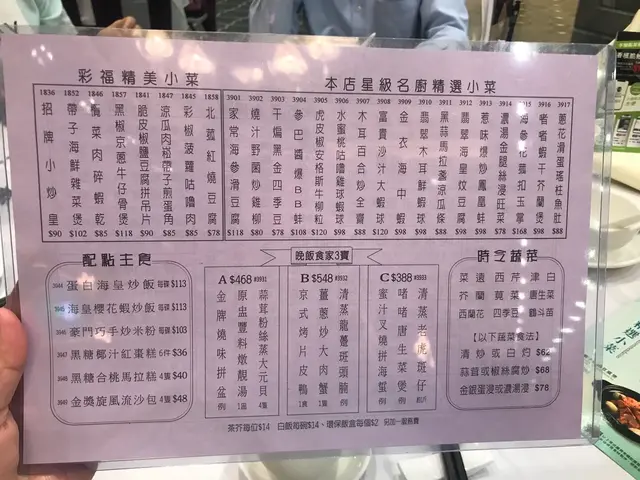 彩福精美小菜
1836 招牌小炒皇 $90
1852 帶子海鮮雜菜煲 $102
1846 欖菜肉碎蝦乾 $85
1857 黑椒京蔥牛仔骨煲 $115
1841 脆皮椒鹽豆腐拼吊片 $90
1847 涼瓜肉粒帶子煎蛋角 $85
1845 彩椒菠蘿咕嚕肉 $85
1858 北菰紅燒豆腐 $80
本店星級名廚精選小菜
3901 家常海參滑豆腐 $118
3902 燒汁野菌炒雞柳 $80
3903 干煸黑金四季豆 $80
3904 參巴醬爆BB蚌 $108
3905 虎皮椒安格斯牛柳粒 $120
3906 水蜜桃咕嚕雞球蝦球 $98
3907 木耳百合炒全齋
3908 富貴沙汁大蝦球 $120
3909 金衣海中蝦 $98
3910 翡翠木耳鮮蝦球 $98
3911 黑蒜馬拉盞涼瓜條 $88
3912 翡翠海皇炆豆腐 $98
3913 惹味爆炒鳳凰蚌 $98
3914 濃湯金腿絲浸旺菜 $78
3915 海參花菰扣玉掌 $168
3916 啫啫蝦干芥蘭煲 $98
3917 蔥花滑蛋瑤柱魚肚 $88
配點主食
3944 蛋白海皇炒飯 每碟 $113
3945 海皇櫻花蝦炒飯 每碟 $113
3946 豪門巧手炒米粉 每碟 $103
3947 黑糖椰汁紅棗糕 6件 $36
3948 黑糖合桃馬拉糕 4隻 $40
3943 金獎旋風流沙包 4隻 $48
晚飯食家3寶
A $468 #3991
蒜茸粉絲蒸大元貝 4隻
原盅豐料燉靚湯 1窩
金牌燒味拼盆 例
B $548 #3992
清蒸龍躉斑頭腩 例
薑蔥炒大肉蟹 1隻
京式烤片皮鴨 1隻
C $388 #3993
清蒸老虎斑仔
啫啫唐生菜煲 例
蜜汁叉燒拼海蜇 例
時令蔬菜
菜遠 西芹 津白
芥蘭 莧菜 唐生菜
西蘭花 四季豆 鶴斗苗
【以下蔬菜食法】
清炒或白灼 $62
蒜茸或椒絲腐炒 $68
金銀蛋浸或濃湯浸 $78
茶芥每位$14 白飯每碗$14、環保飯盒每個$2 另加一服務費